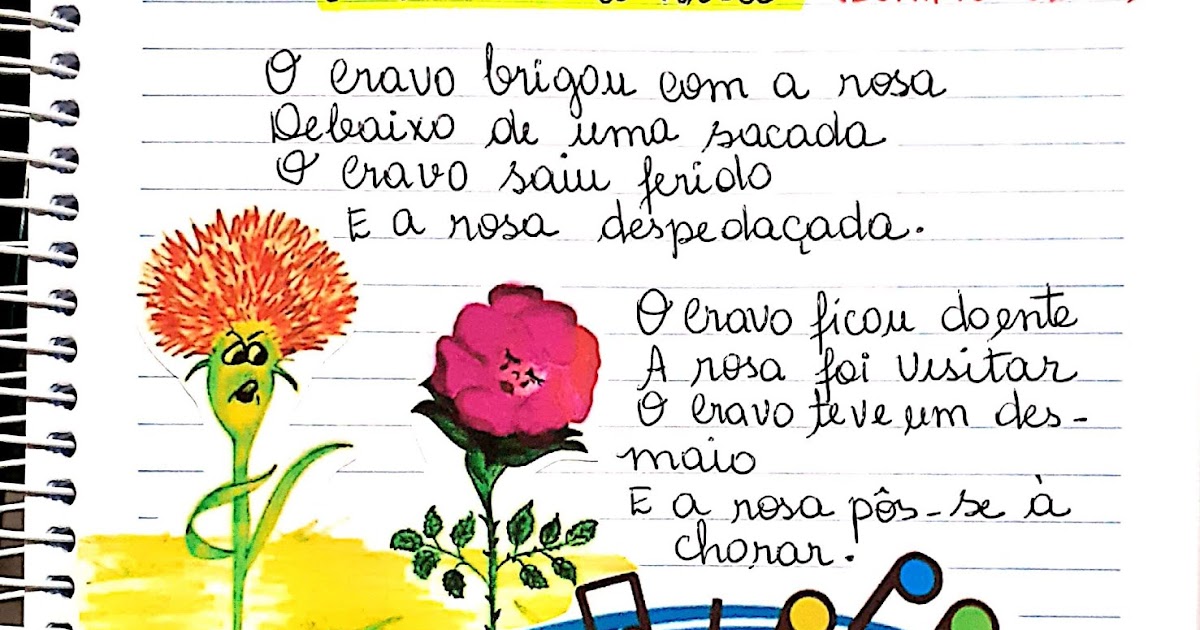 O cravo brigou com a rosa
Debaixo de uma sacada
O cravo saiu ferido
E a rosa despedaçada.
O cravo ficou doente
A rosa foi visitar
O cravo teve um des-
maio
E a rosa pôs-se à
chorar.